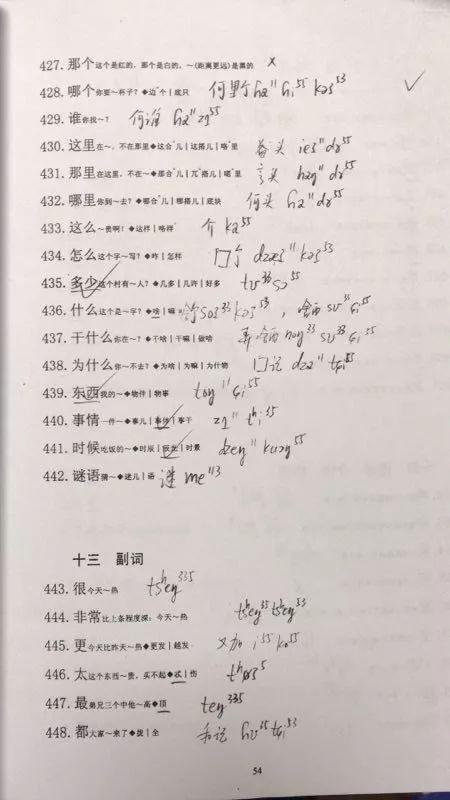 427. 那个 这个是红的，那个是白的，～(距离更远)是黑的 ×
428. 哪个 你要～一杯子？◆边°个 | 底只 何里个 ɦa¹¹ ɦi⁵⁵ kəʔ⁵³ ✓
429. 谁 你找～？ 何谁 ɦa¹¹ zɿ⁵⁵
430. 这里 在～，不在那里◆这合°儿 | 这搭儿 | 咯°里 头 ieʔ¹¹ dɤ⁵⁵
431. 那里 在这里，不在～◆那合°儿 | 兀°搭儿 | 嗯°里 头
432. 哪里 你到～去？◆哪合°儿 | 哪搭儿 | 底块 何头 ɦa¹¹ dɤ⁵⁵
433. 这么 ～贵啊！◆这样 | 咯样 介 ka⁵⁵
434. 怎么 这个字～写？◆咋 | 怎样
435. 多少 这个村有～人？◆几多 | 几许 | 好多 tu³³ sɔ⁵⁵
436. 什么 这个是～字？◆啥 | 嘛 kəʔ⁵³，啥西 su³³ ɕi⁵⁵
437. 干什么 你在～？◆干啥 | 干嘛 | 做啥 弄啥西 noŋ³³ su³³ ɕi⁵⁵
438. 为什么 你～不去？◆为啥 | 为嘛 | 为什物 dza¹¹ tɕi⁵⁵
439. 东西 我的～◆物件 | 物事 toŋ¹¹ ɕi⁵⁵
440. 事情 一件～◆事儿 | 事体 | 事干 zɿ¹¹ tʰi⁵⁵
441. 时候 吃饭的～◆时辰 | 辰光 | 时景 dzeŋ¹¹ kuɔŋ⁵⁵
442. 谜语 猜～◆迷儿 | 语 谜 me¹¹³
十三 副词
443. 很 今天～热 tsʰeŋ³³⁵
444. 非常 比上条程度深：今天～热 tsʰeŋ³⁵ tsʰeŋ⁵³
445. 更 今天比昨天～热◆更发 | 越发 又加 i⁵⁵ ko⁵⁵
446. 太 这个东西～贵，买不起◆忒 | 伤
447. 最 弟兄三个中他～高◆顶 teŋ³³⁵
448. 都 大家～来了◆拢 | 全 和记 ɦu³⁵ tɕi⁵³
54